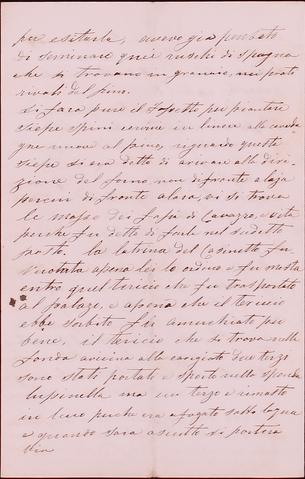 per esitarle, avevo gia pensato
di seminare quei ruschi di spagna
che si trovano in granaio, nei prati
rivali del fimo.
Si fara pure il fossetto per piantare
siepe spini in linea alle
que nuove al fimo, riguardo questi
siepe si era detto di arivare alla divi
zione del forno, non di fronte alaja
percui di fronte alara, vi si trova
le masse dei fassi di Cavazzo, e sito
perche fu detto di farle nel suddetto
posto. la latrina del Casinetto fu
vuotata apena lei lo ordino e fu mista
entro quel tericio che fu trasportato
al palazo, e apena che il tericio
ebbe sorbito fu amuchiato per
bene, il tericio che si trova nella
fonda avicina alle due terzi
sono stati portati e sparti nella sponda
lupinella ma un terzo e rimasto
in luco perche era afogato sotto laqua
e quando sara asciutto si portera
via